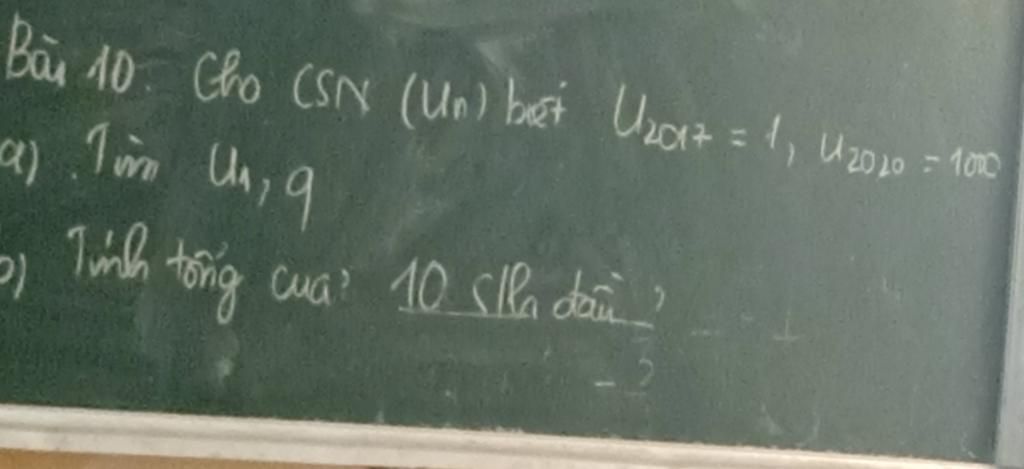 Bài 10. Cho CSN (Un) biết U2017 = 1, U2020 = 1000
a). Tìm U1, q
b) Tính tổng của 10 SHh đầu